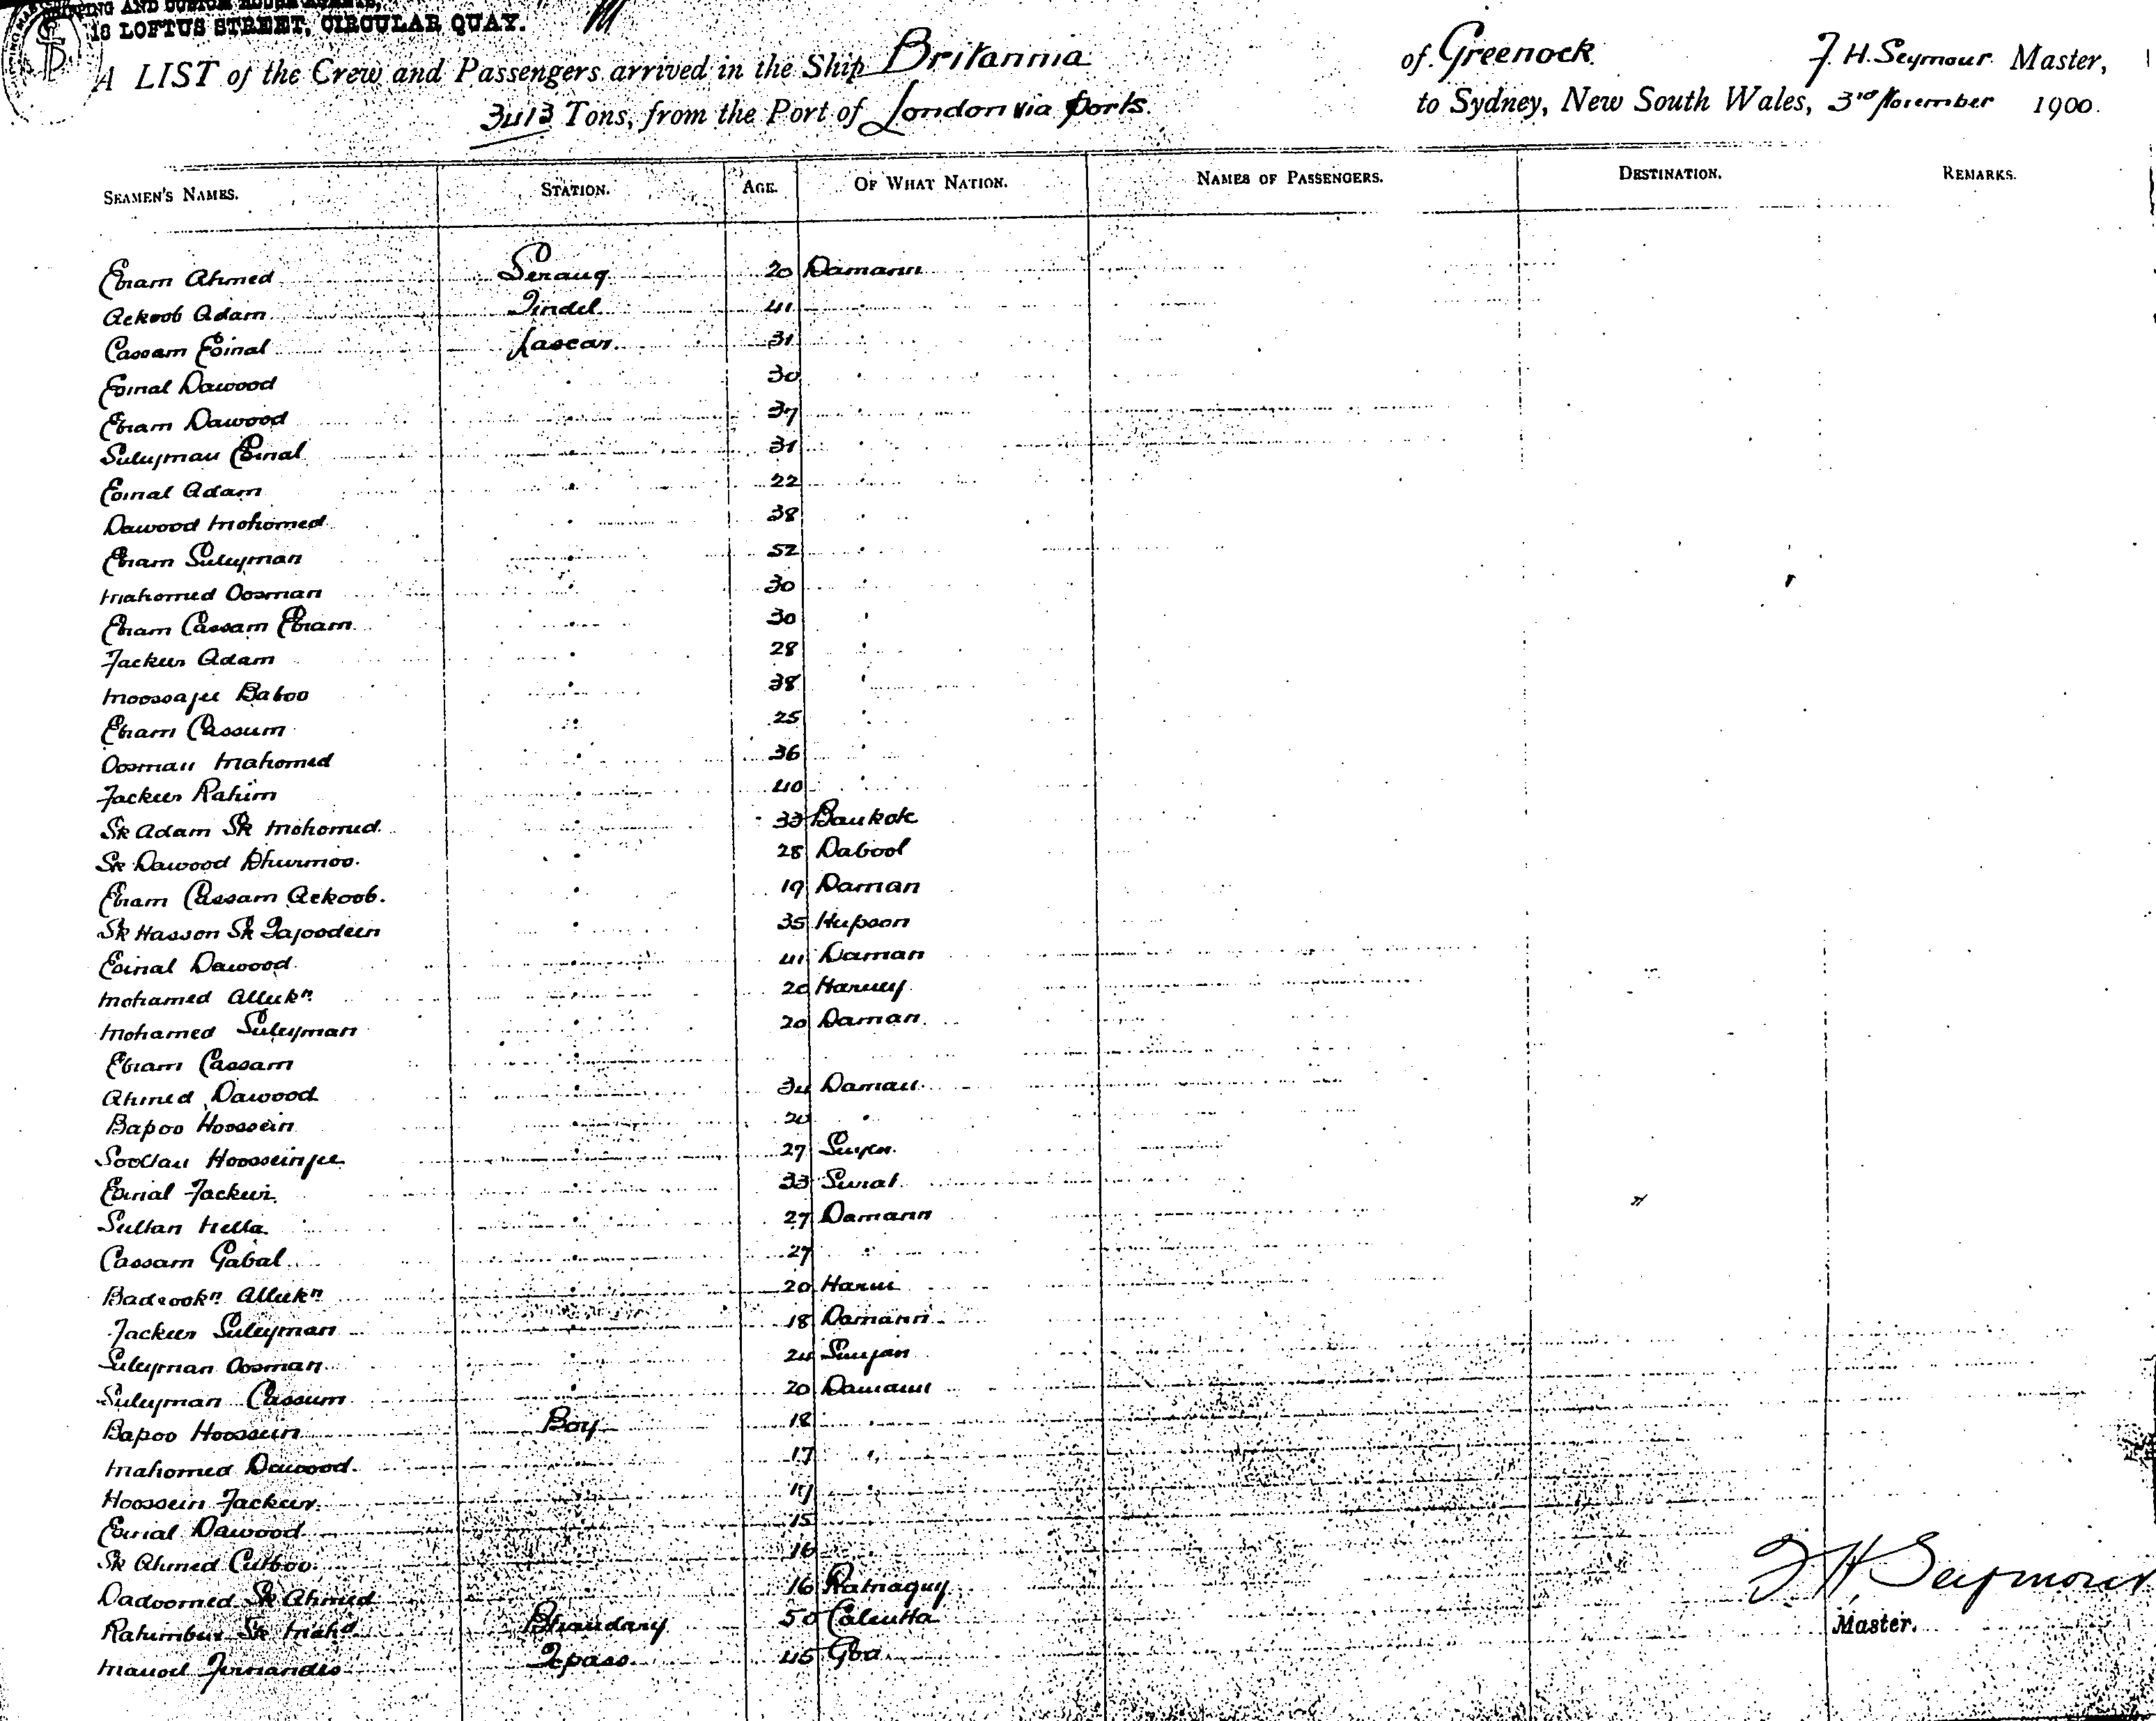 SHIPPING AND CUSTOM HOUSE AGENTS,
18 LOFTUS STREET, CIRCULAR QUAY.
A LIST of the Crew and Passengers arrived in the Ship Britannia of Greenock F. H. Seymour Master,
3413 Tons, from the Port of London via ports. to Sydney, New South Wales, 3rd November 1900.
SEAMEN'S NAMES. STATION. AGE. OF WHAT NATION. NAMES OF PASSENGERS. DESTINATION. REMARKS.
Ebram Ahmed Serang 20 Damann
Ackoob Adam Tindel 41
Cassam Esinal Lascar 31
Esinal Dawood 30
Ebram Dawood 37
Suleyman Esinal 31
Esinal Adam 22
Dawood Mohomed 38
Ebram Suleyman 52
Mahomed Oosman 30
Ebram Cassam Ebram 30
Jackur Adam 28
Moossajee Baboo 38
Ebram Cassum 25
Oosman Mahomed 36
Jackur Rahim 40
Sk Adam Sk Mohomed 33 Baukote
Sk Dawood Dhurmoo. 28 Dabool
Ebram Cassam Ackoob. 19 Daman
Sk Hasson Sk Tajoodeen 35 Hupson
Esinal Dawood 41 Daman
Mohamed Alleekn 20
Mohamed Suleyman 20 Daman
Ebram Cassam
Ahmed Dawood 34 Daman
Bapoo Hoossein 20
Hoosseinjee 27
Esinal Jackur 33 Surat
Sultan 27 Damann
Cassam Gabal 27
Badrookn Alleekn 20
Jackur Suleyman 18 Damann
Suleyman Oosman 24 Sunjan
Suleyman Cassum 20 Damann
Bapoo Hoossein Boy 18
Mahomed Dawood 17
Hoossein Jackur
Esinal Dawood 15
Sk Ahmed Cutboo. 16
Dadoomed Sk Ahmed 16
Rahimbux Sk Mahd Bhandary 50 Calcutta
Manoel Fernandes Topass 45 Goa
F H Seymour
Master.